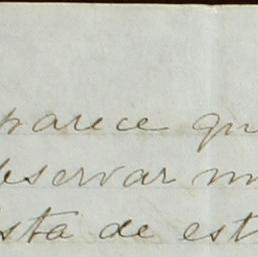 parece qu
bservar m
sta de est